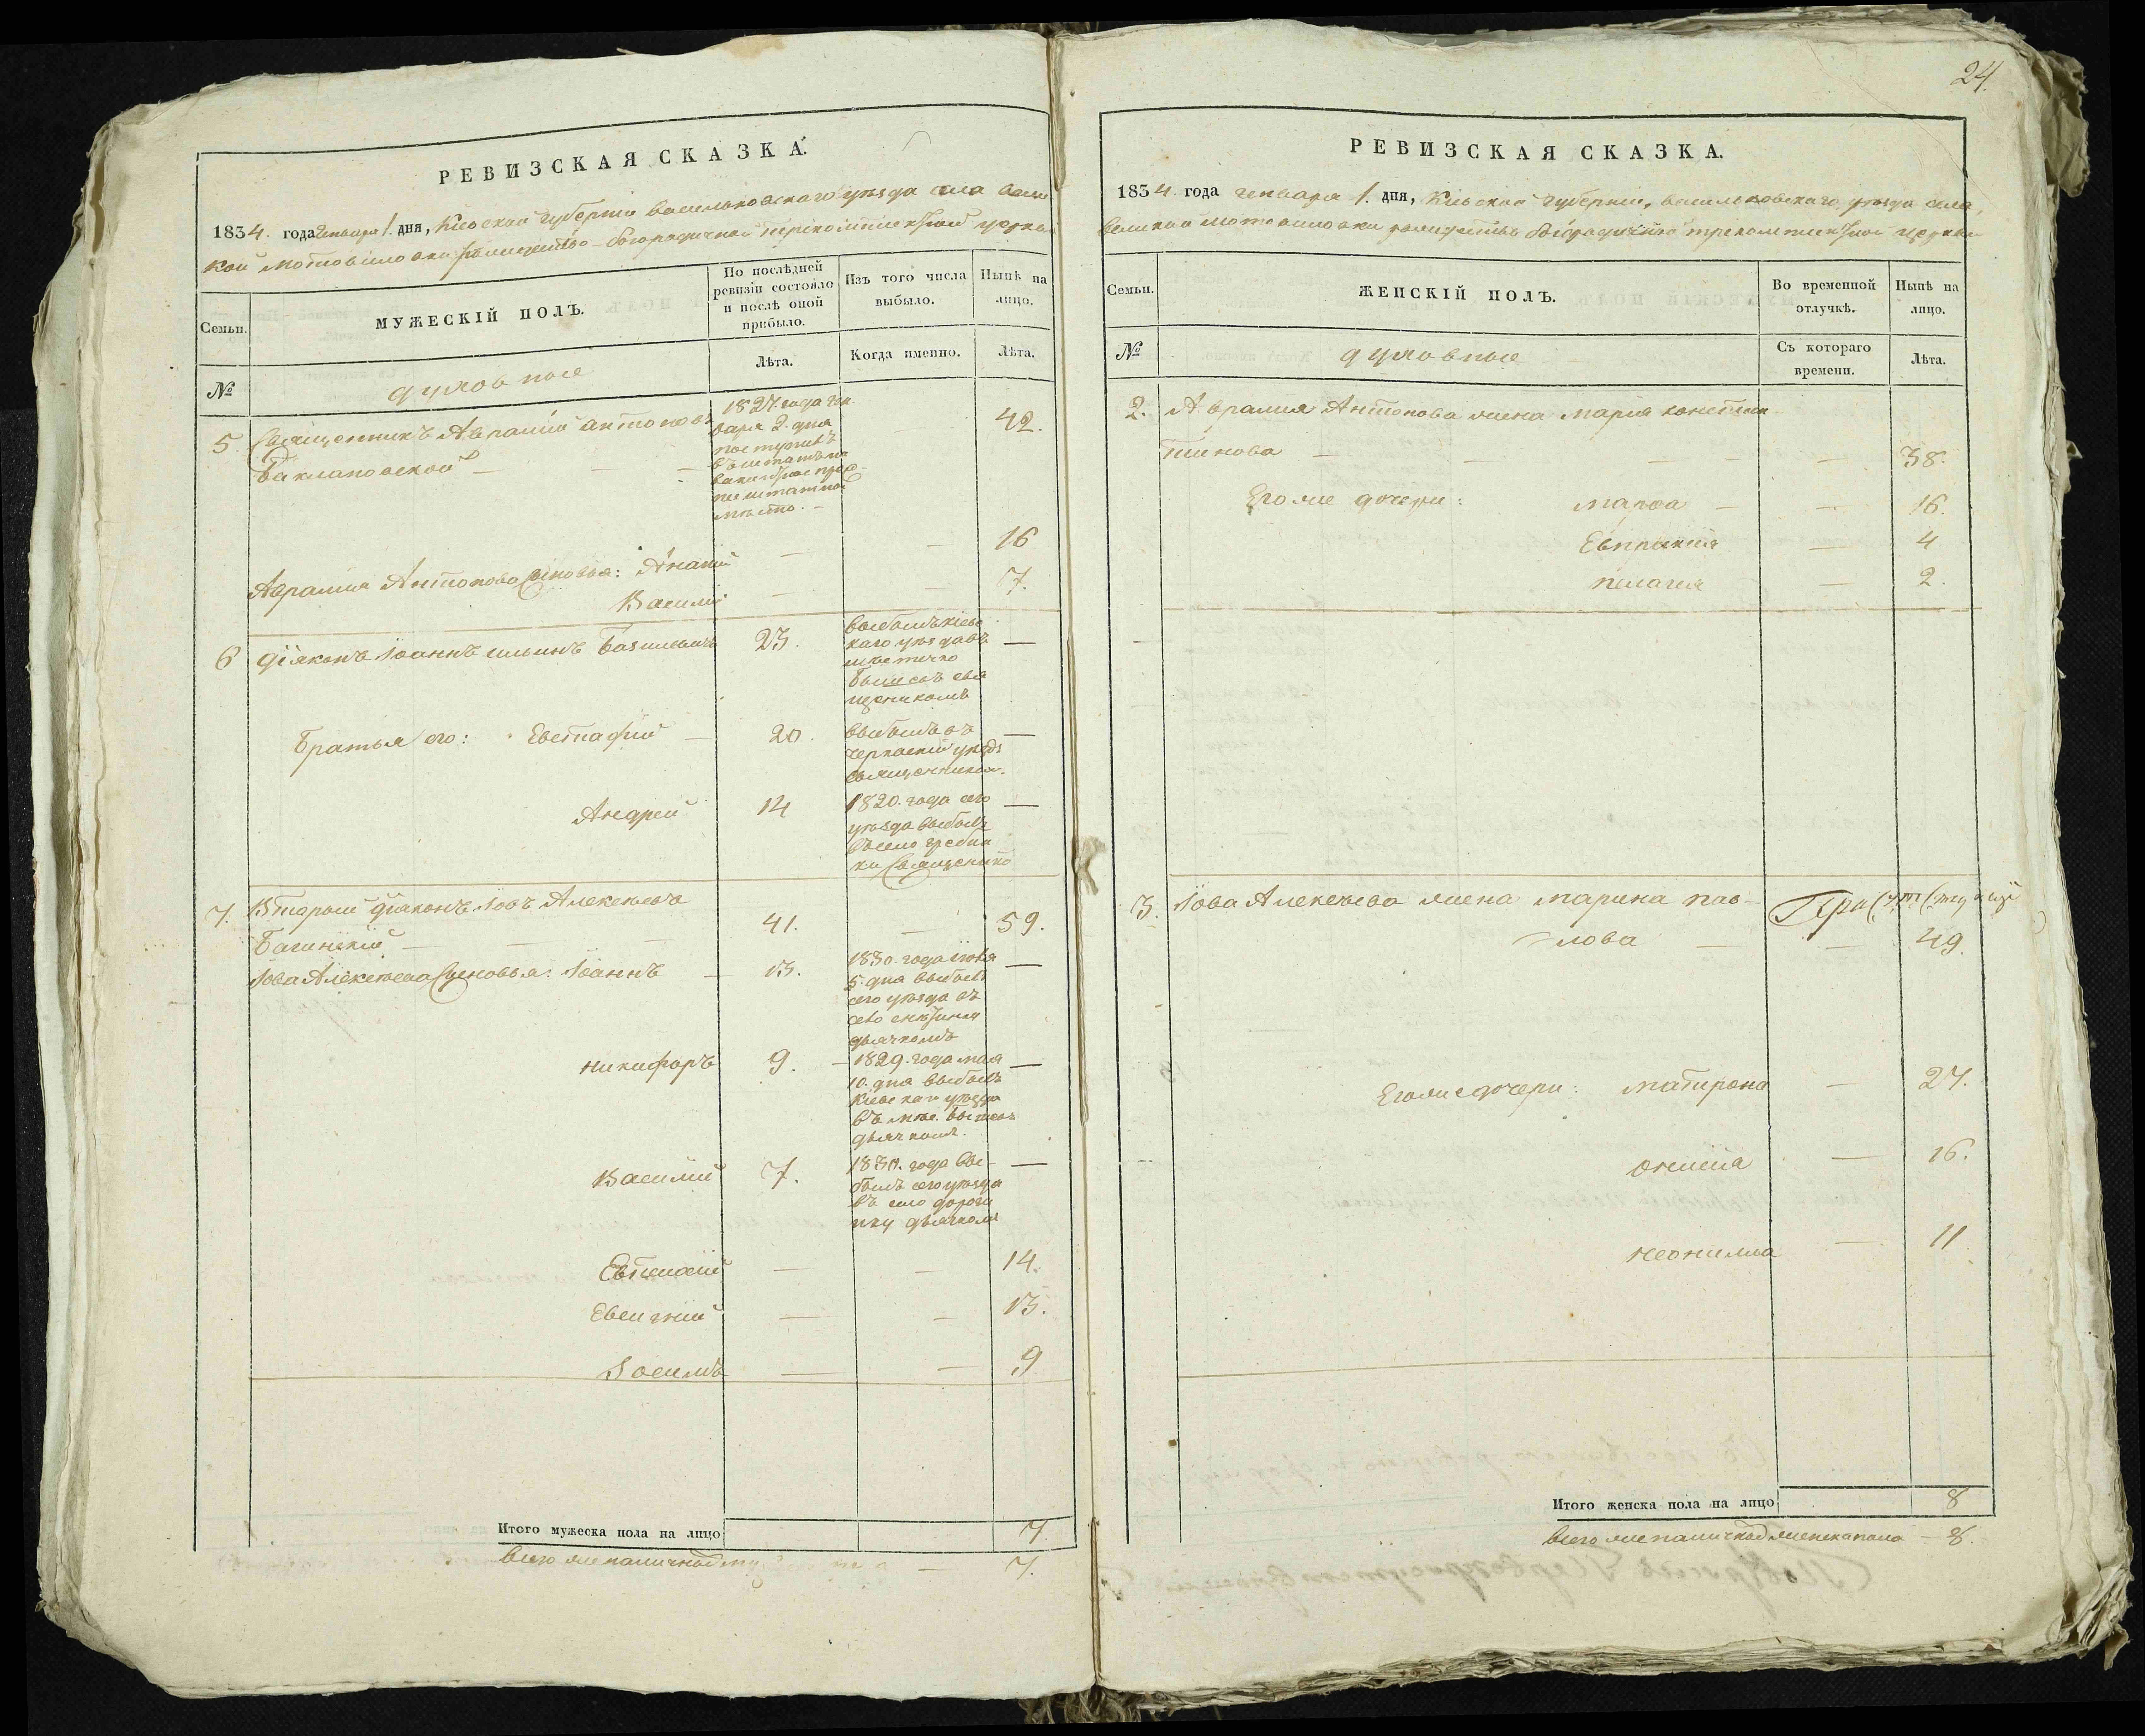 РЕВИЗСКАЯ СКАЗКА.
1834. года Генваря 1. дня, Кіевской губерніи Васильковскаго уѣзда села Вели
кой Мотовиловки рождество-богородичной трекомплектной церкви
Семьи.
МУЖЕСКІЙ ПОЛЪ.
По послѣдней ревизіи состояло и послѣ оной прибыло.
Изъ того числа выбыло.
Нынѣ на лицо.
№
духовные
Лѣта.
Когда именно.
Лѣта.
5 Священникъ Аврамій Антоновъ
Баклановской
1827. года Ген
варя 2. дня
поступивъ
въ штатъ на
мѣсто.
42.
Аврамія Антонова сыновья: Ананій — — 16
Василій — — 7.
6 Діяконъ Іоаннъ Ильинъ Базилевичъ 23. —
выбылъ Кіевс
каго уѣзда въ
мѣстечко
свя
щеникомъ
Братья его: Евстафій — 20. —
выбылъ въ
черкаскій уѣздъ
священникомъ.
Андрей 14 —
1820. года сего
уѣзда выбылъ
въ село Гребин
ки Священико
7. Вторый діяконъ Іовъ Алексѣевъ
Багинскій — 41. — 59.
Іова Алексѣева Сыновья: Іоаннъ — 13. —
1830. года Іюня
5. дня выбылъ
сего уѣзда въ
село
дьячкомъ
Никифоръ 9. —
1829. года мая
10. дня выбылъ
Кіевскаго уѣзда
въ мѣс.
дьячкомъ.
Василій 7. —
1830. года вы-
былъ сего уѣзда
въ село Дороги
нку дьячкомъ
Евтихій — — 14.
Евгеній — — 13.
— — 9
Итого мужеска пола на лицо 7.
Всего же наличной — 7.
24.
РЕВИЗСКАЯ СКАЗКА.
1834. года генваря 1. дня, Кіевской губерніи, васильковскаго уѣзда села,
Великой Мотовиловки рождество Богородичной трекомплектной церкви
Семьи.
ЖЕНСКІЙ ПОЛЪ.
Во временной отлучкѣ.
Нынѣ на лицо.
№
духовные
Съ котораго времени.
Лѣта.
2. Аврамія Антонова жена Марія констан-
тинова — — 38.
Его же дочери: Марфа — — 16.
Евпраксія — 4
пелагея — 2.
3. Іова Алексѣева жена Марина пав-
лова — — 49.
Его же дочери: Матирона — 27.
Онисія — 16.
Неонилла — 11
Итого женска пола на лицо 8
Всего же наличной женска пола — 8.